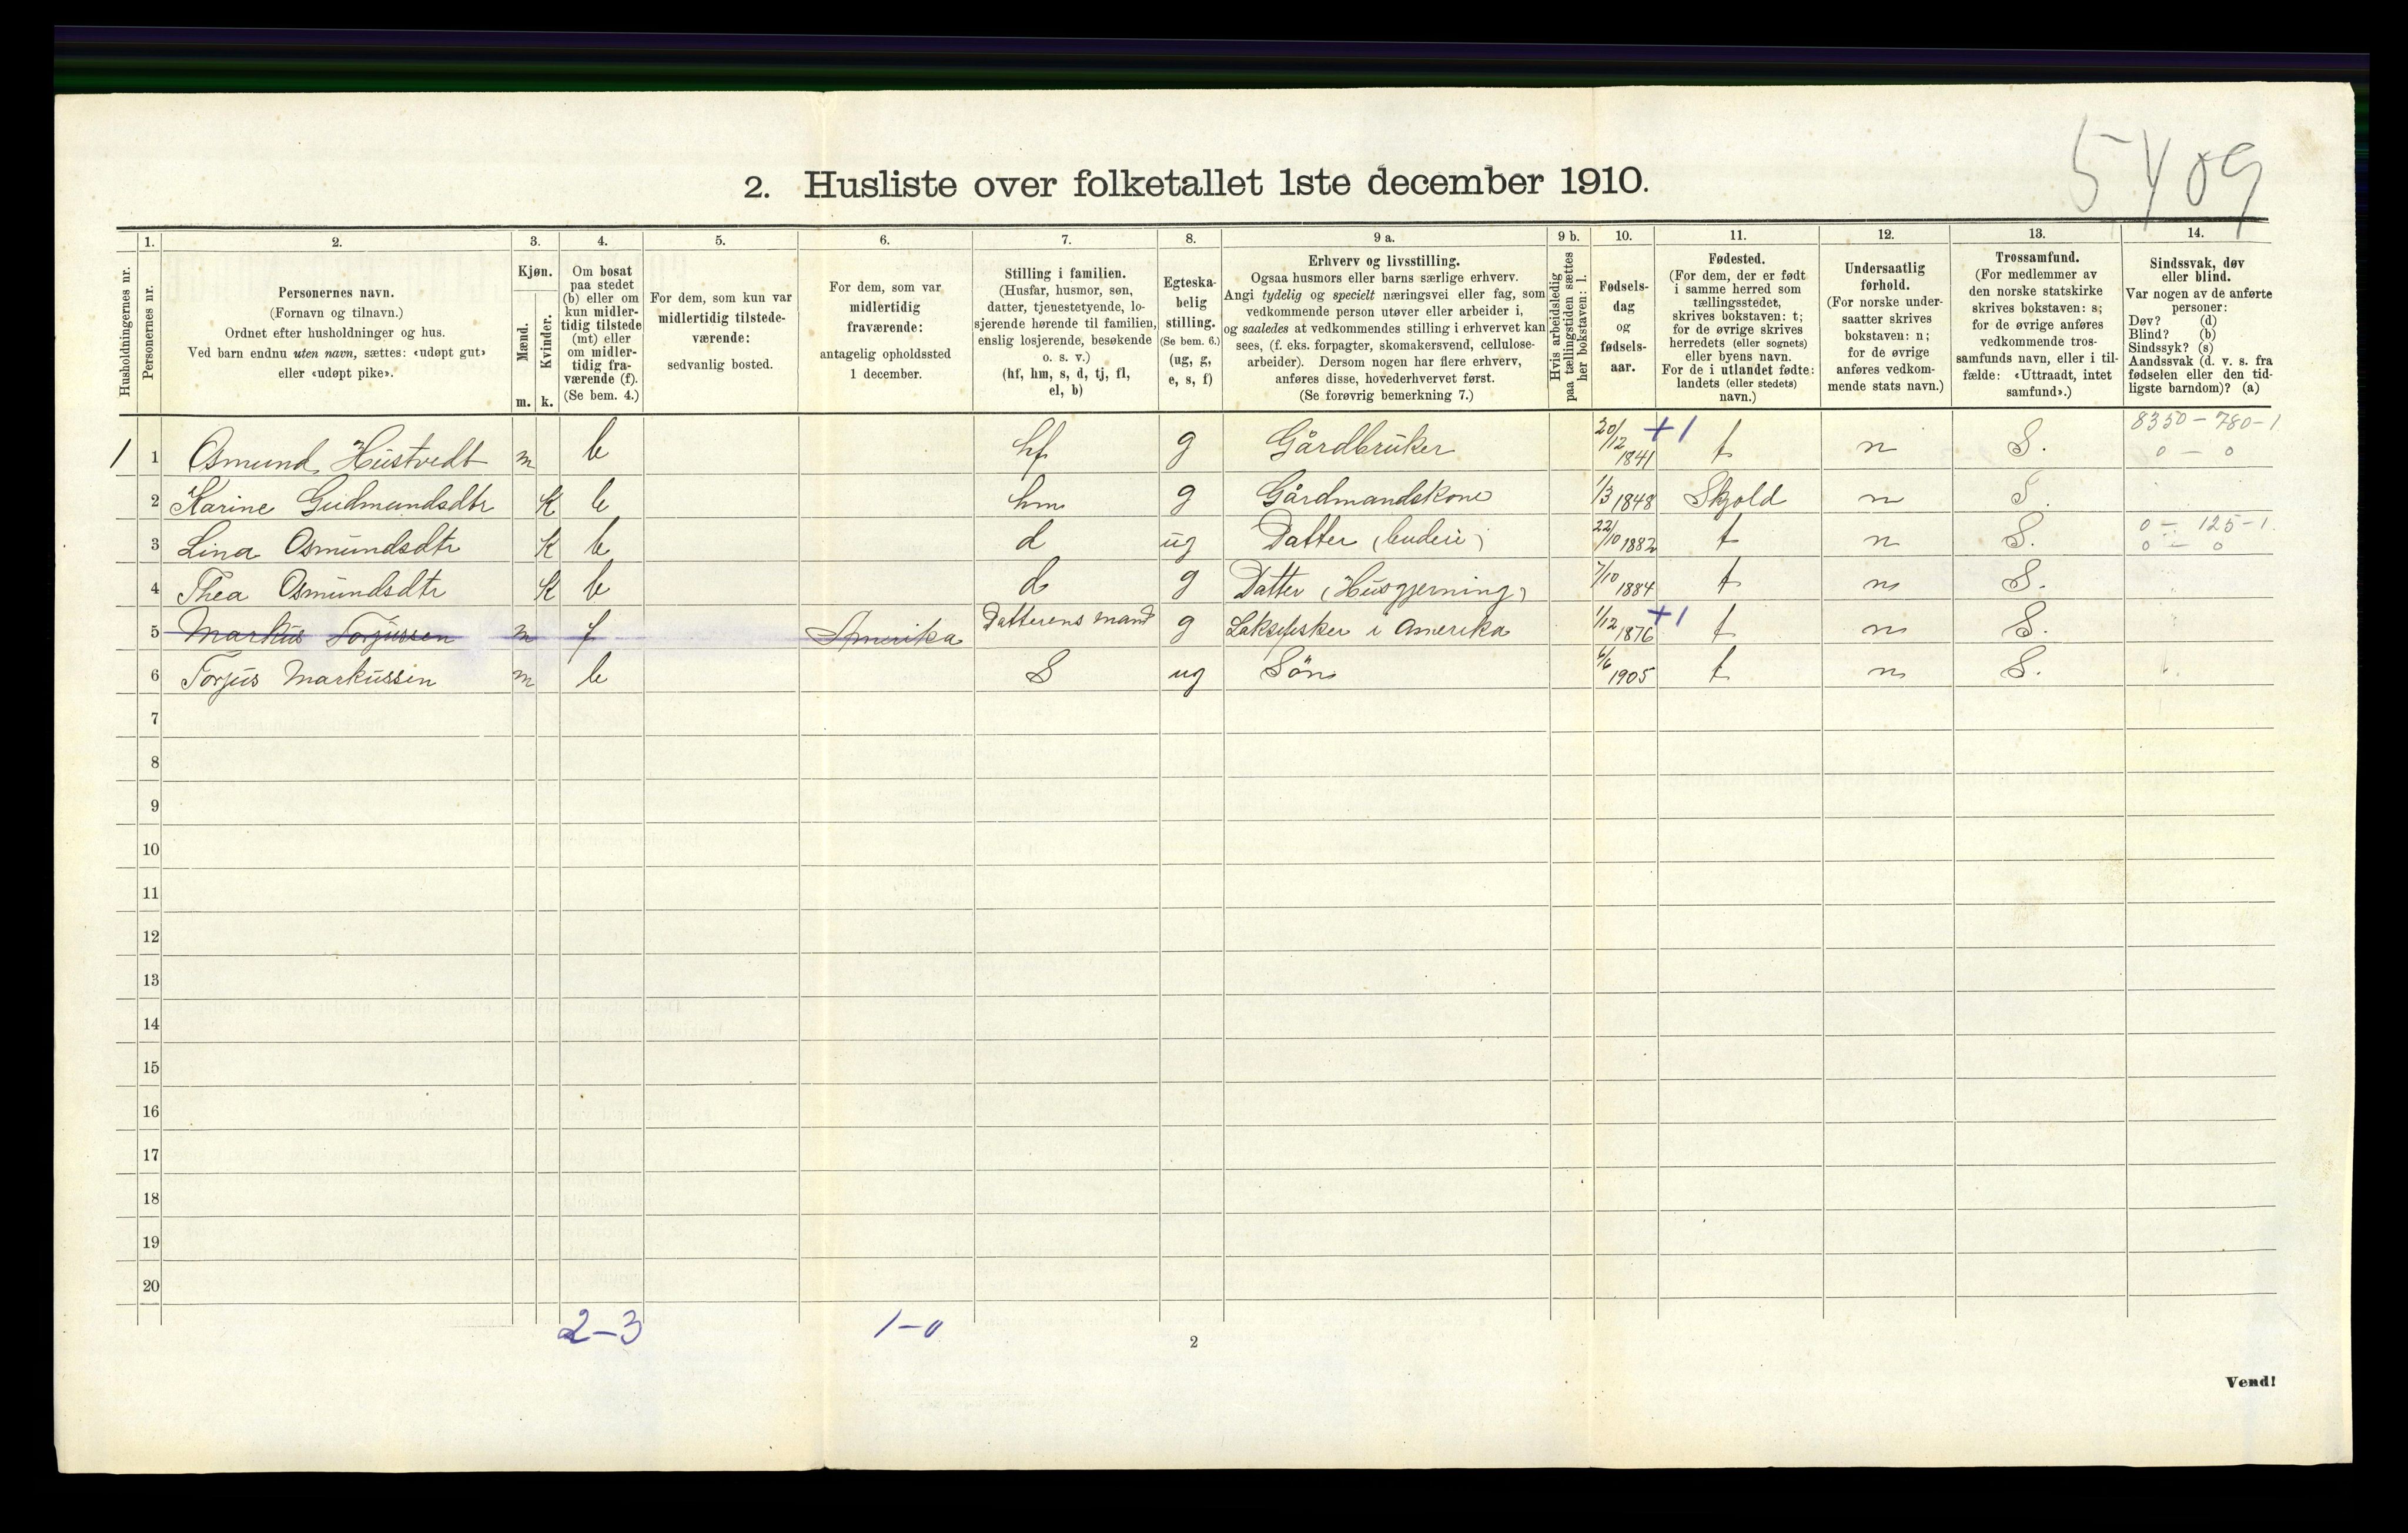 5409
2. Husliste over folketallet 1ste december 1910.
1. 2. 3. 4. 5. 6. 7. 8. 9 a. 9 b. 10. 11. 12. 13. 14.
Husholdningernes nr.
Personernes nr.
Personernes navn.
(Fornavn og tilnavn.)
Ordnet efter husholdninger og hus.
Ved barn endnu uten navn, sættes: «udøpt gut»
eller «udøpt pike».
Kjøn.
Mænd.
Kvinder.
m. k.
Om bosat
paa stedet
(b) eller om
kun midler-
tidig tilstede
(mt) eller
om midler-
tidig fra-
værende (f).
(Se bem. 4.)
For dem, som kun var
midlertidig tilstede-
værende:
sedvanlig bosted.
For dem, som var
midlertidig
fraværende:
antagelig opholdssted
1 december.
Stilling i familien.
(Husfar, husmor, søn,
datter, tjenestetyende, lo-
sjerende hørende til familien,
enslig losjerende, besøkende
o. s. v.)
(hf, hm, s, d, tj, fl,
el, b)
Egteska-
belig
stilling.
(Se bem. 6.)
(ug, g,
e, s, f)
Erhverv og livsstilling.
Ogsaa husmors eller barns særlige erhverv.
Angi tydelig og specielt næringsvei eller fag, som
vedkommende person utøver eller arbeider i,
og saaledes at vedkommendes stilling i erhvervet kan
sees, (f. eks. forpagter, skomakersvend, cellulose-
arbeider). Dersom nogen har flere erhverv,
anføres disse, hovederhvervet først.
(Se forøvrig bemerkning 7.)
Hvis arbeidsledig
paa tællingstiden sættes
her bokstaven: l.
Fødsels-
dag
og
fødsels-
aar.
Fødested.
(For dem, der er født
i samme herred som
tællingsstedet,
skrives bokstaven: t;
for de øvrige skrives
herredets (eller sognets)
eller byens navn.
For de i utlandet fødte:
landets (eller stedets)
navn.)
Undersaatlig
forhold.
(For norske under-
saatter skrives
bokstaven: n;
for de øvrige
anføres vedkom-
mende stats navn.)
Trossamfund.
(For medlemmer av
den norske statskirke
skrives bokstaven: s;
for de øvrige anføres
vedkommende tros-
samfunds navn, eller i til-
fælde: «Uttraadt, intet
samfund».)
Sindssvak, døv
eller blind.
Var nogen av de anførte
personer:
Døv? (d)
Blind? (b)
Sindssyk? (s)
Aandssvak (d. v. s. fra
fødselen eller den tid-
ligste barndom)? (a)
8350 - 780 - 1
1 1 Osmund Hustvedt m b hf g Gårdbruker 20/12 1841 +1 t n S. 0 - 0
2 Karine Gudmundsdtr K b hm g Gårdmandskone 1/3 1848 Skjold n S.
0 - 125 - 1.
3 Lina Osmundsdtr K b d ug Datter (budeie) 22/10 1882 t n S. 0 - 0
4 Thea Osmundsdtr K b d g Datter (Husgjerning) 7/10 1884 t n S.
5 Markus Torjussen m f Amerika Datterens mand g Laksefisker i Amerika 1/12 1876 +1 t n S.
6 Torjus Markussen m b S ug Sön 6/6 1905 t n S.
7
8
9
10
11
12
13
14
15
16
17
18
19
20
2-3 1-0
2
Vend!